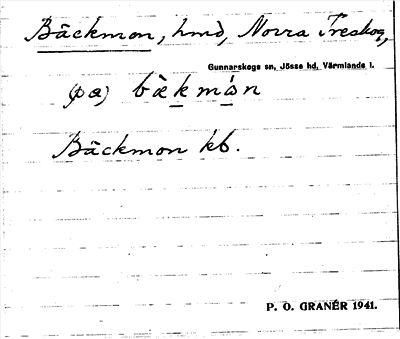 Bäckmon, hmd, Norra Treskog,
Gunnarskogs sn, Jösse hd, Värmlands l.
(på) bèkmȯ́n
Bäckmon kb.
P. O. GRANÉR 1941.